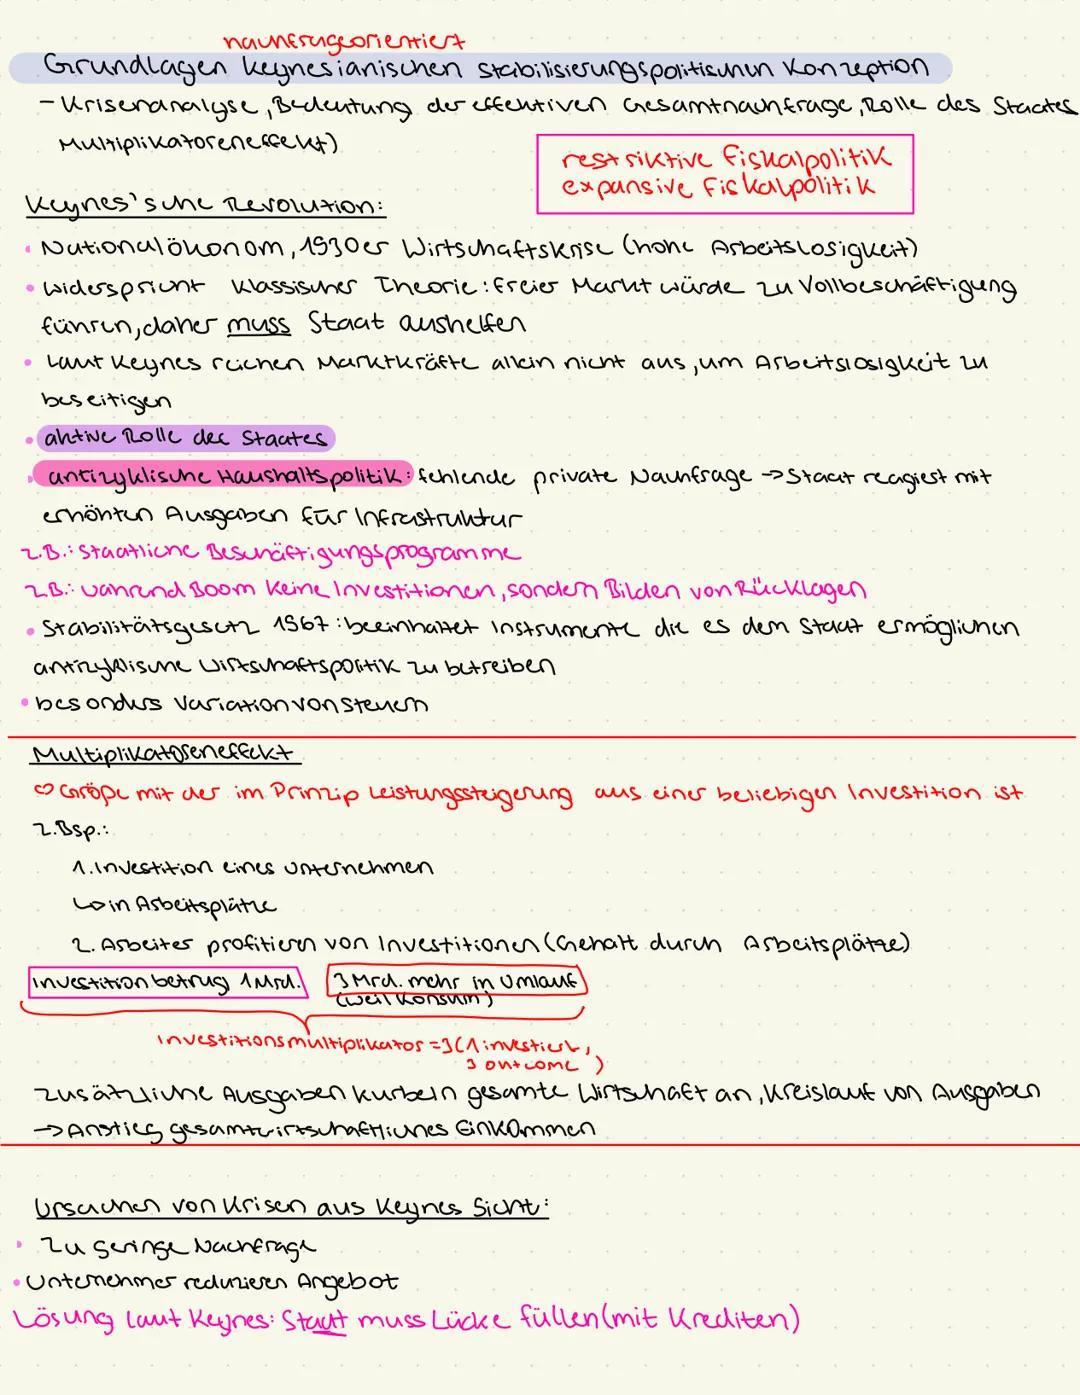 nachfrageorientiert
Grundlagen keynesianischen stabilisierungspolitischen Konzeption
- Krisenanalyse, Bedeutung der effektiven Gesamtnachfrage, Rolle des Staates
Multiplikatoreneffekt)
restriktive Fiskalpolitik
expansive Fiskalpolitik
Keynes'sche Revolution:
• Nationalökonom, 1930er Wirtschaftskrise (hohe Arbeitslosigkeit)
• widerspricht klassischer Theorie: freier Markt würde zu Vollbeschäftigung
führen, daher muss Staat aushelfen
• Laut Keynes reichen Marktkräfte allein nicht aus, um Arbeitslosigkeit zu
beseitigen
• aktive Rolle des Staates
• antizyklische Haushaltspolitik: fehlende private Nachfrage → Staat reagiert mit
erhöhten Ausgaben für Infrastruktur
z.B.: Staatliche Beschäftigungsprogramme
z.B.: während Boom keine Investitionen, sondern Bilden von Rücklagen
• Stabilitätsgesetz 1967: beeinhaltet Instrumente die es dem Staat ermöglichen
antizyklische Wirtschaftspolitik zu betreiben
• besonders Variation von Steuern
Multiplikatoreneffekt
Größe mit der im Prinzip Leistungssteigerung aus einer beliebigen Investition ist
z.Bsp.:
1. Investition eines Unternehmen
↳ in Arbeitsplätze
2. Arbeiter profitieren von Investitionen (Gehalt durch Arbeitsplätze)
Investition betrug 1 Mrd. 3 Mrd. mehr in Umlauf
(weil Konsum)
Investitionsmultiplikator = 3 (1 investiert,
3 outcome)
Zusätzliche Ausgaben kurbeln gesamte Wirtschaft an, Kreislauf von Ausgaben
→ Anstieg gesamtwirtschaftliches Einkommen
Ursachen von Krisen aus Keynes Sicht:
• Zu geringe Nachfrage
• Unternehmer reduzieren Angebot
Lösung laut Keynes: Staat muss Lücke füllen (mit Krediten)